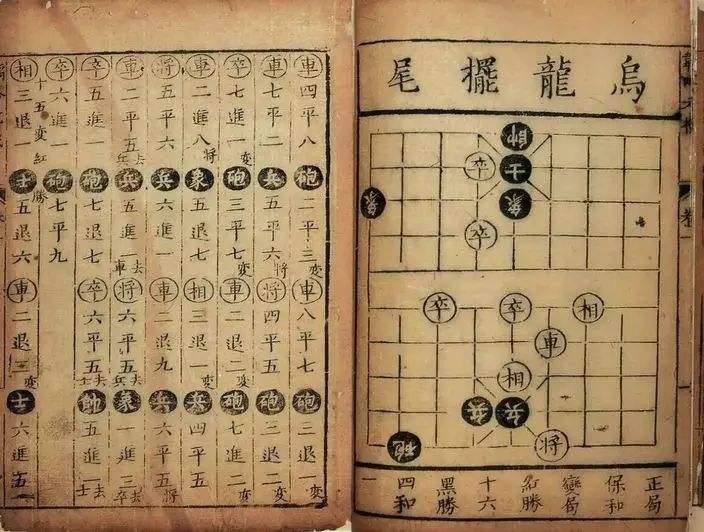 烏龍擺尾
帥
卒士
象象
卒
卒卒相
車
相
兵兵
砲將
正局
保和
變局
紅勝
十六
黑勝
四和
一
卷一
車四平八砲二平三變車八平七砲三退一變
車七平二兵五平六將將四平五砲三退二變
卒七進一變砲三平七變車二退一變砲七進二變
車二進八將象五退七相三退一變兵四平五
將五平六兵六進一車三退九兵六平五將
車二平五去兵兵五進一去車將六平五去兵象一進三去卒
卒五進一砲七退七卒六平五去士帥五進一去士
卒六進一砲七平九
十五變紅勝
相三退一士五退六車二退三變士六進五